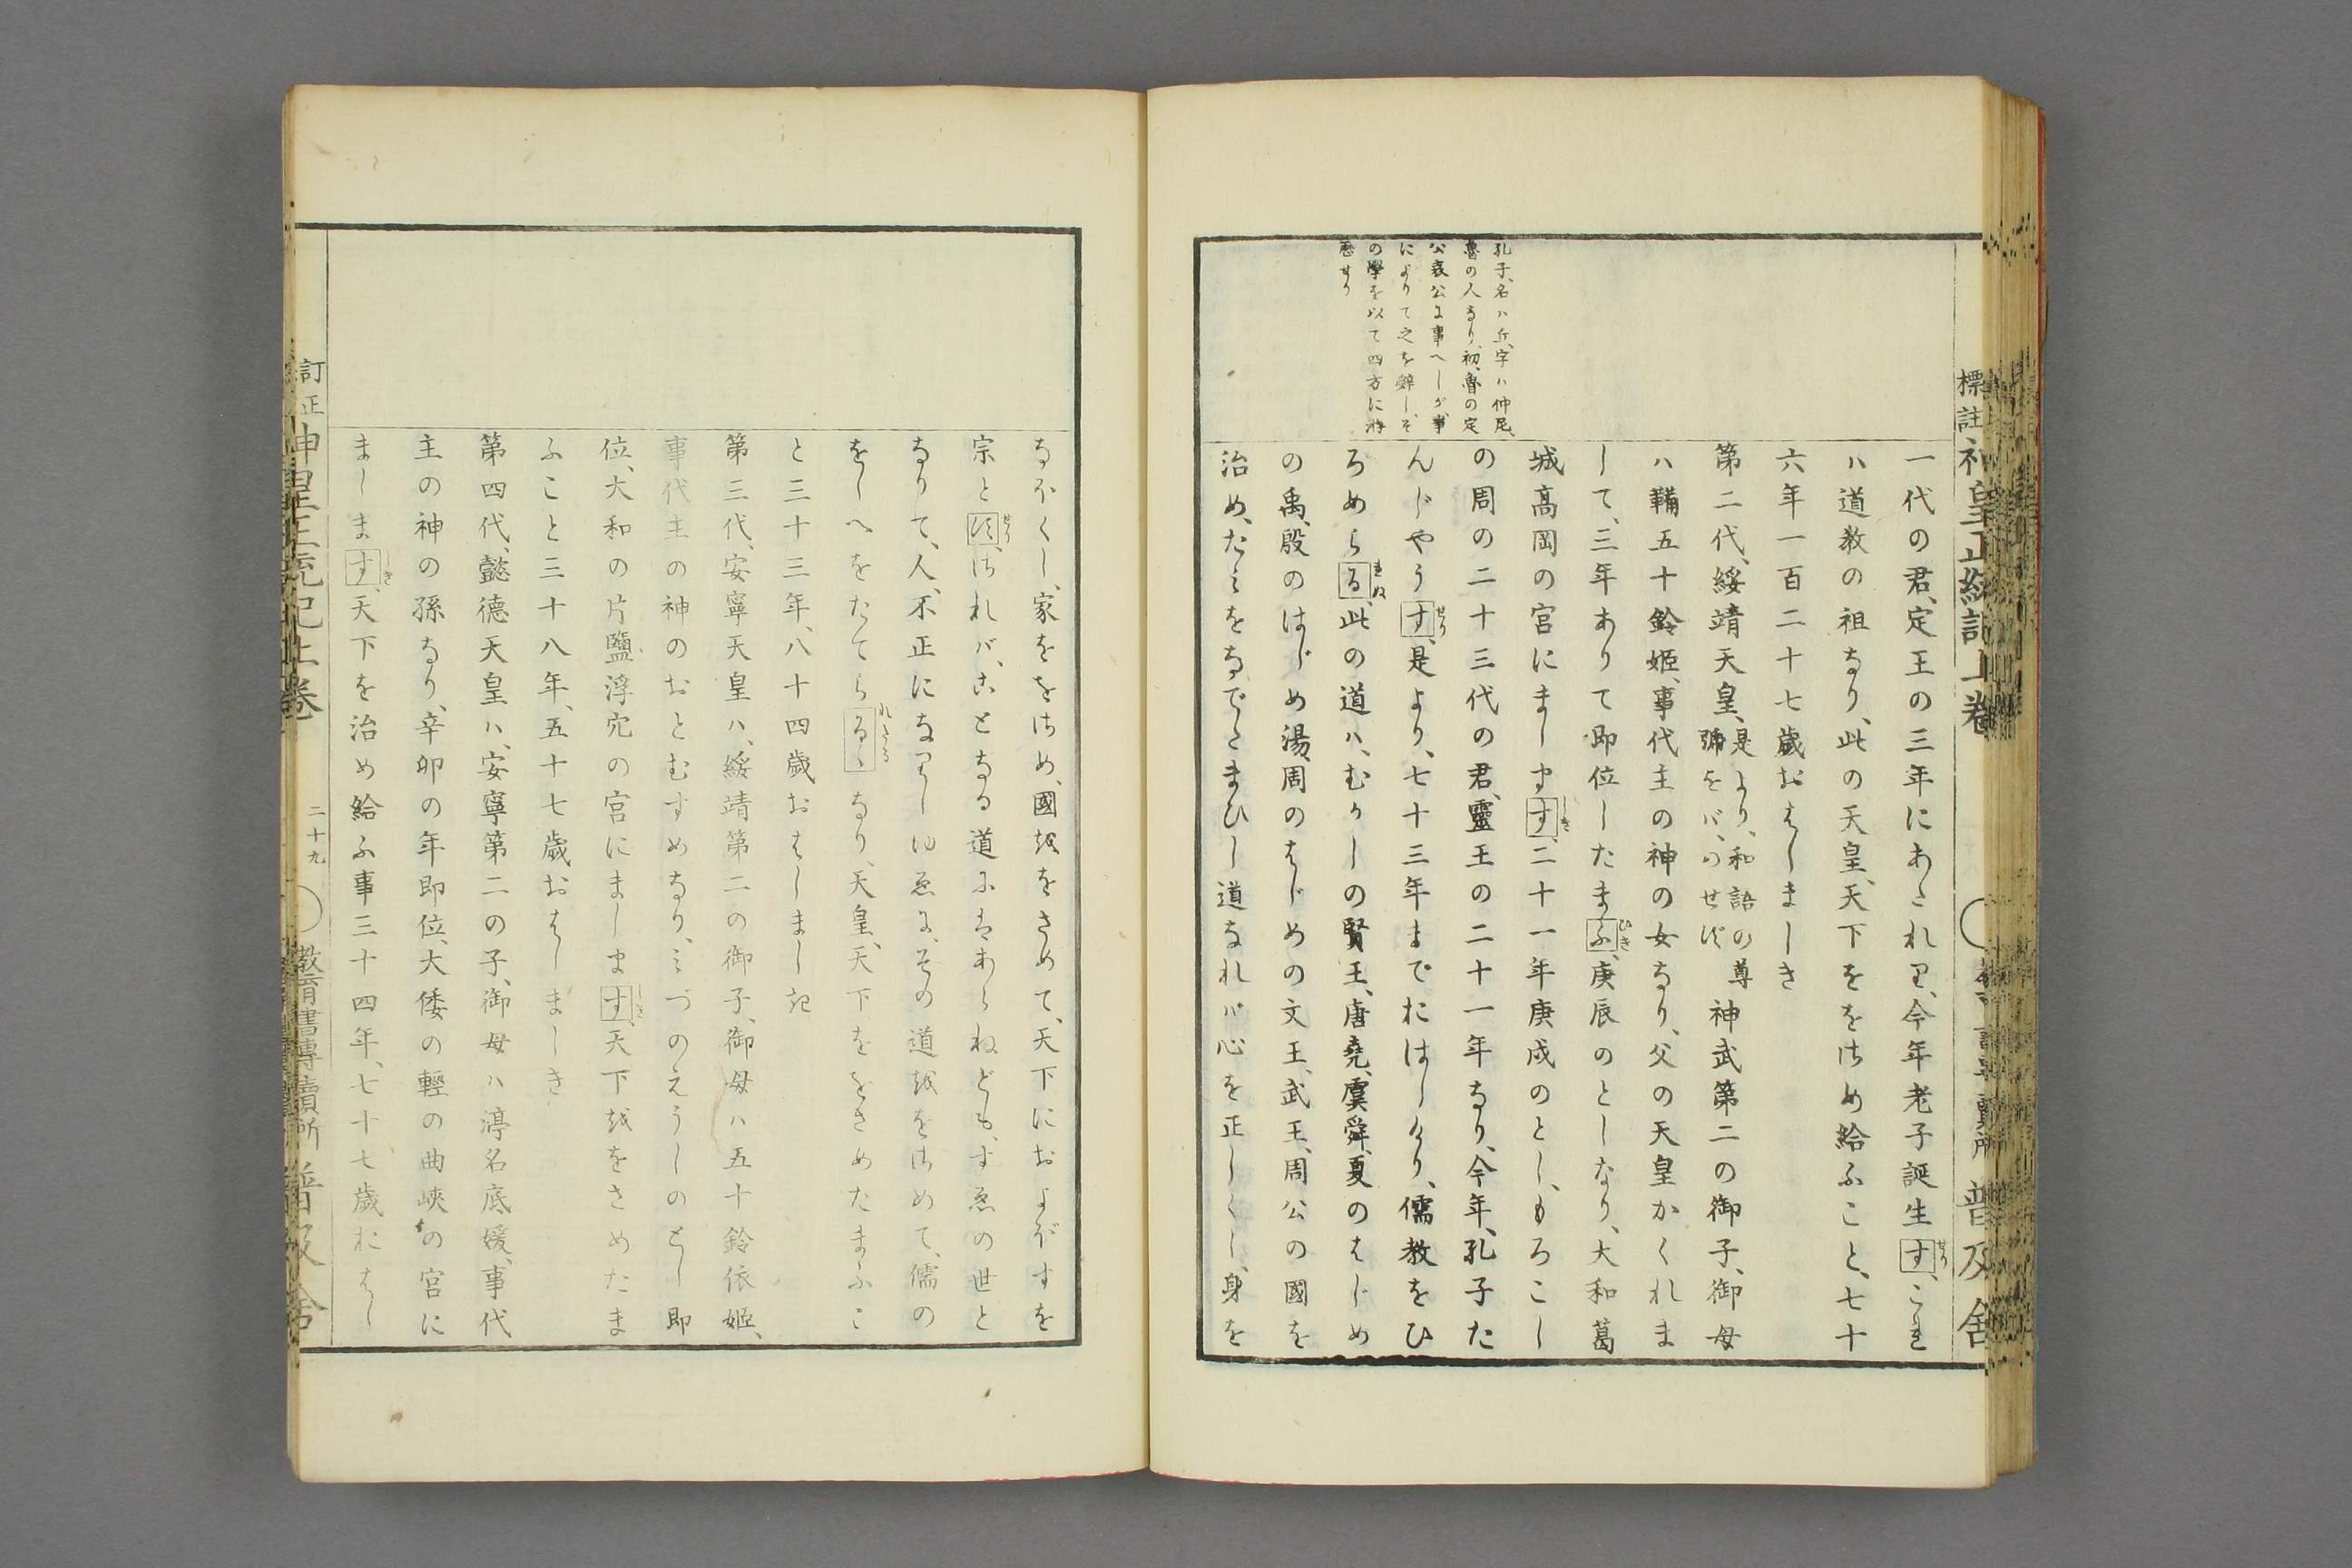 標註神皇正統記上巻
普及舎
孔子、名ハ丘、字ハ仲尼、
魯の人なり、初、魯の定
公哀公に事へしが、事
によりて之を辭しぞ
の學を以て四方に游
歴せり
一代の君、定王の三年にあたれり、今年老子誕生す、せりこれ
ハ道教の祖なり、此の天皇、天下ををさめ給ふこと、七十
六年一百二十七歳おはしましき
第二代、綏靖天皇、是より、和語の尊號をバ、のせず神武第二の御子、御母
ハ鞴五十鈴姫、事代主の神の女なり、父の天皇かくれま
して、三年ありて即位したまふ、ひき庚辰のとしなり、大和葛
城高岡の宮にまします、しき二十一年庚戌のとし、もろこし
の周の二十三代の君、靈王の二十一年なり、今年、孔子た
んじやうす、せり是より、七十三年までおはしけり、儒教をひ
ろめらる、れぬ此の道ハ、むかしの賢王、唐堯、虞舜、夏のはじめ
の禹、殷のはじめ湯、周のはじめの文王、武王、周公の國を
治め、たみをなでたまひし道なれバ心を正しくし、身を
なほくし、家ををさめ、國をおさめて、天下におよぼすを
宗とす、せりされバ、ことなる道にはあらねども、すゑの世と
なりて、人、不正になりしゆゑに、その道ををさめて、儒の
をしへをたてらるゝれたるなり、天皇、天下ををさめたまふこ
と三十三年、八十四歳おはしましき
第三代、安寧天皇ハ、綏靖第二の御子、御母ハ五十鈴依姫、
事代主の神のおとむすめなり、みづのえうしのとし即
位、大和の片鹽浮穴の宮にまします、しき天下ををさめたま
ふこと三十八年、五十七歳おはしましき
第四代、懿徳天皇ハ、安寧第二の子、御母ハ渟名底媛、事代
主の神の孫なり、辛卯の年即位、大倭の輕の曲峽の宮に
まします、しき天下を治め給ふ事三十四年、七十七歳おはし
訂正神皇正統記上巻
二十九
教育書專賣所
普及舍